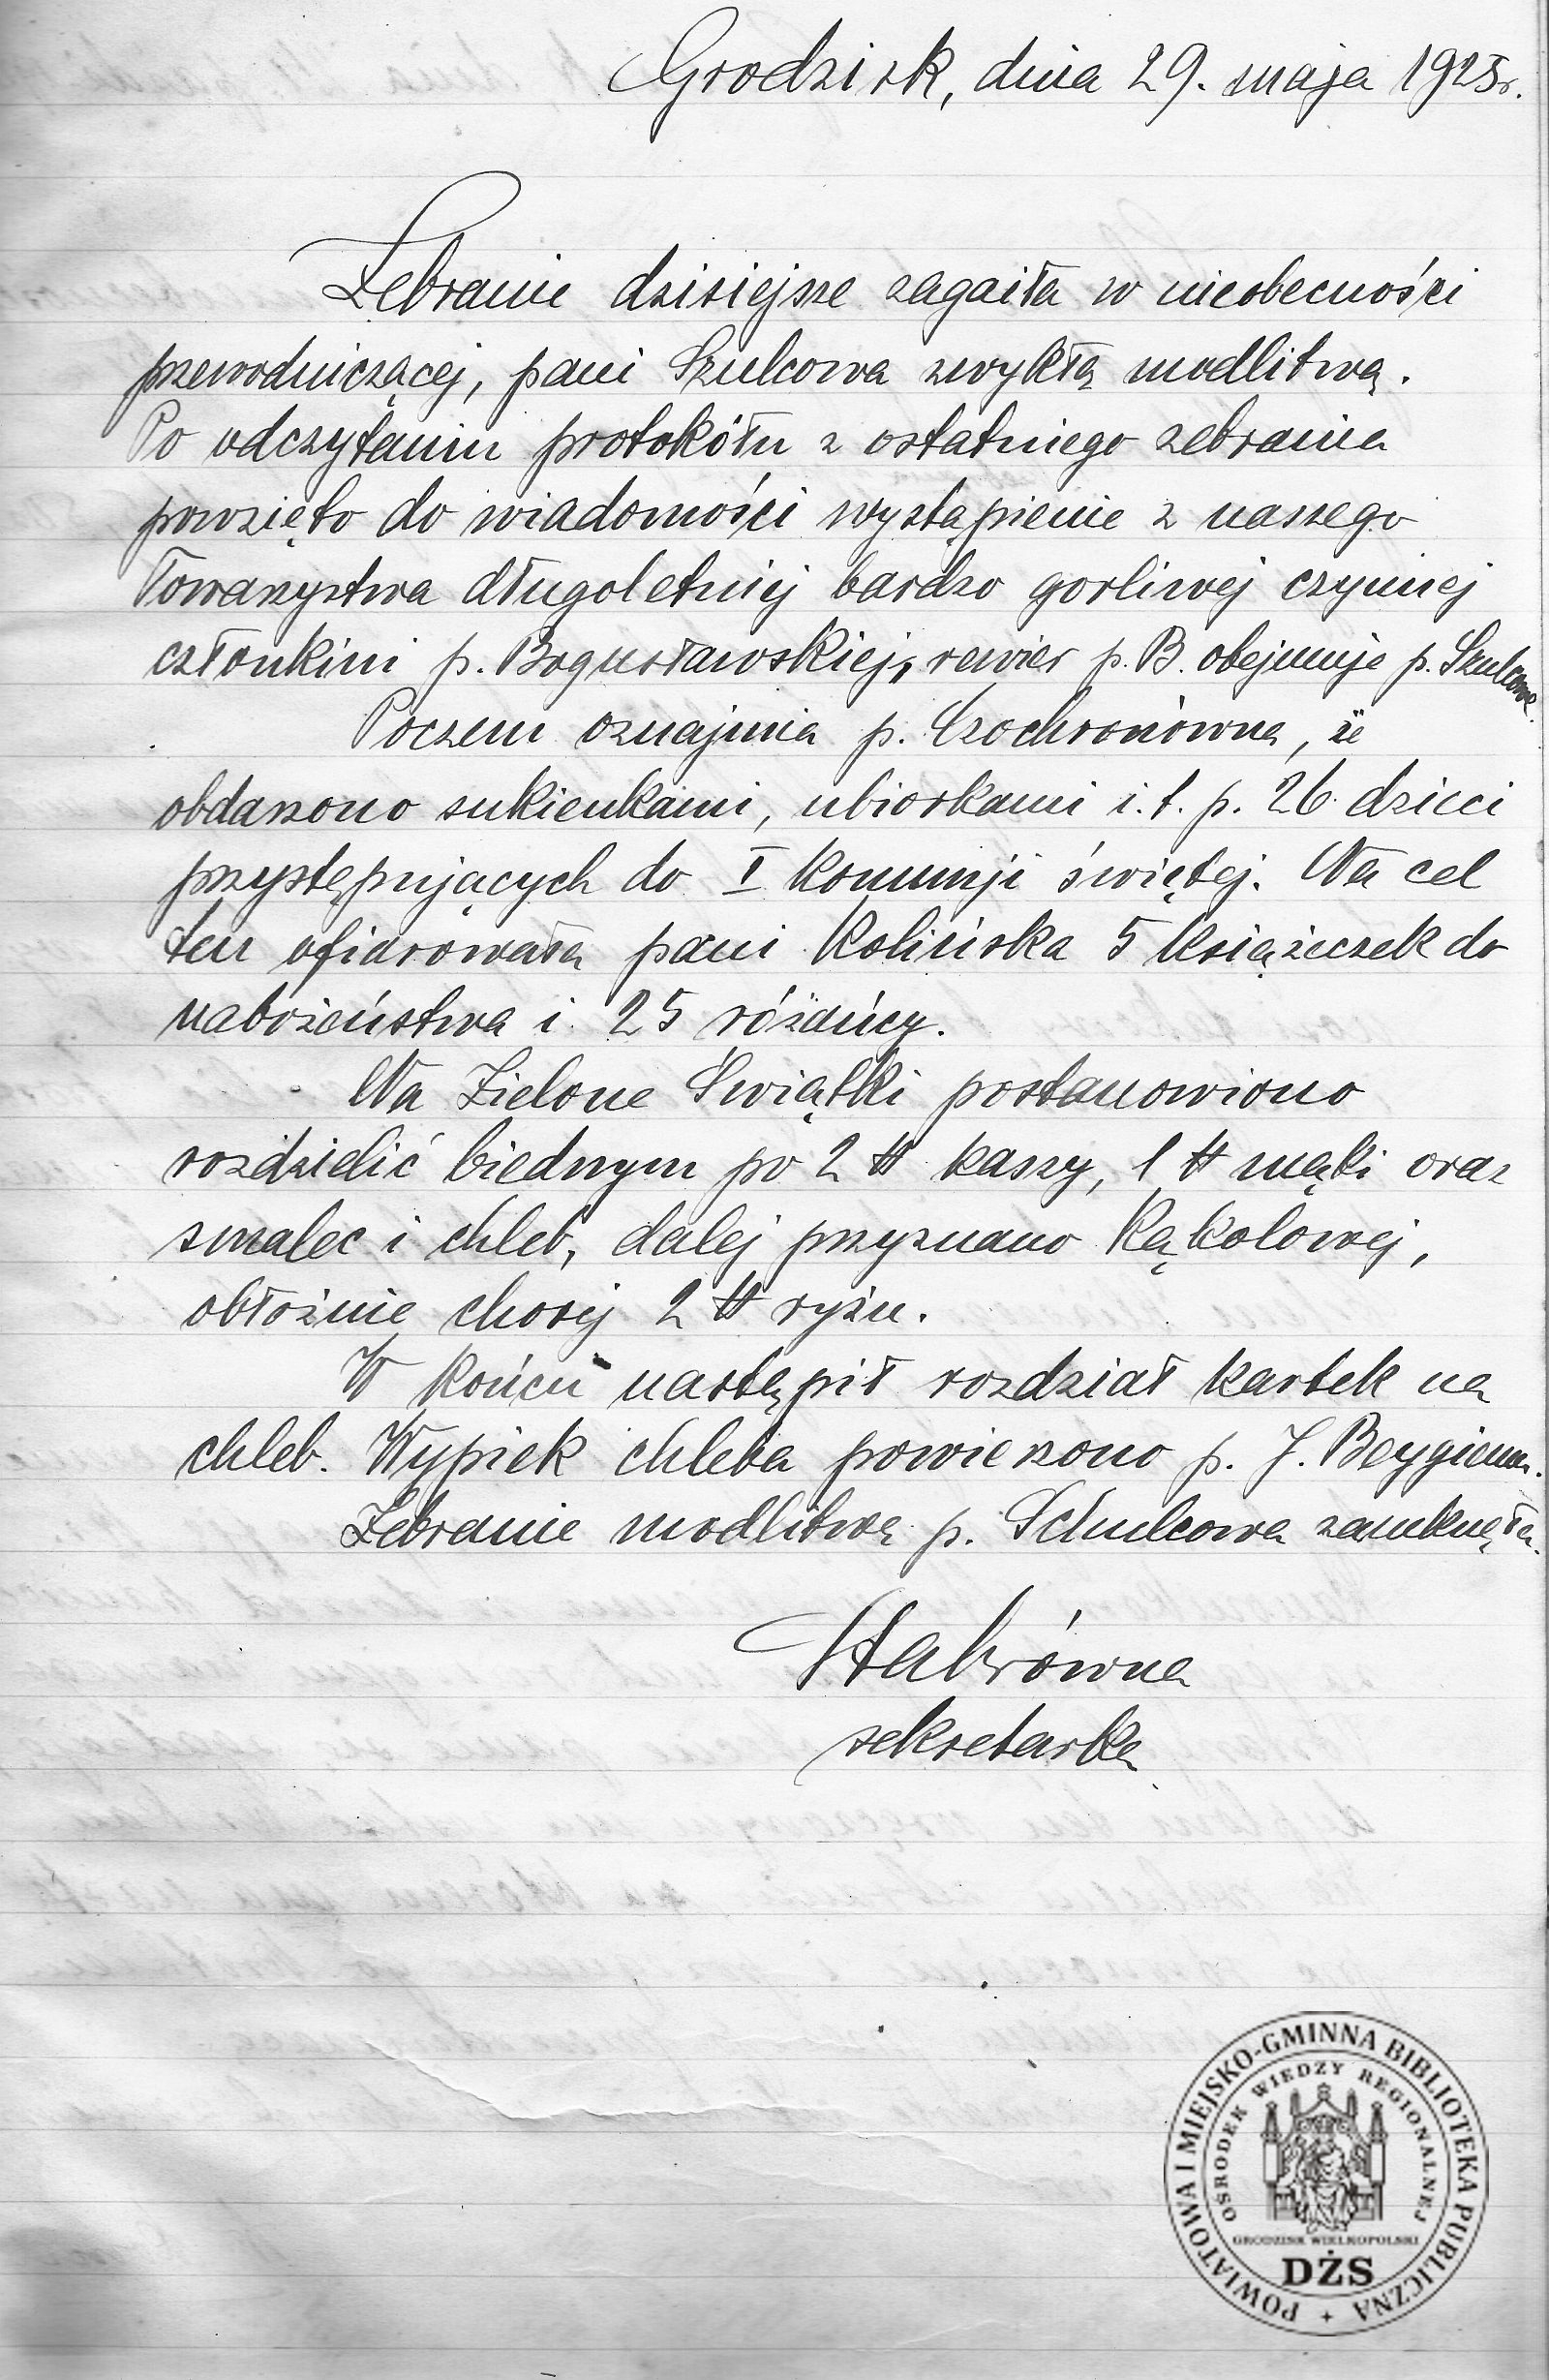 Grodzisk, dnia 29. maja 1925r.
Zebranie dzisiejsze zagaiła w nieobecności
przewodniczącej, pani Szulcowa zwykłą modlitwą.
Po odczytaniu protokółu z ostatniego zebrania
powzięto do wiadomości wystąpienie z naszego
Towarzystwa długoletniej bardzo gorliwej czynnej
członkini p. Bogusławskiej, rewier p. B. obejmuje p. Szulcowa.
Poczem oznajmia p. Czochronówna, że
obdarzono sukienkami, ubiorkami i.t.p. 26 dzieci
przystępujących do I Komunji świętej. Na cel
ten ofiarowała pani Kolińska 5 książeczek do
nabożeństwa i 25 różańcy.
Na Zielone Świątki postanowiono
rozdzielić biednym po 2 ℔ kaszy, 1 ℔ mąki oraz
smalec i chleb, dalej przyznano Kąkolowej,
obłożnie chorej 2 ℔ ryżu.
W końcu nastąpił rozdział kartek na
chleb. Wypiek chleba powierzono p. J. Beygierowi.
Zebranie modlitwą p. Schulcowa zamknęła.
Stabrówna
sekretarka
POWIATOWA I MIEJSKO-GMINNA BIBLIOTEKA PUBLICZNA +
OŚRODEK WIEDZY REGIONALNEJ
GRODZISK WIELKOPOLSKI
DŻS